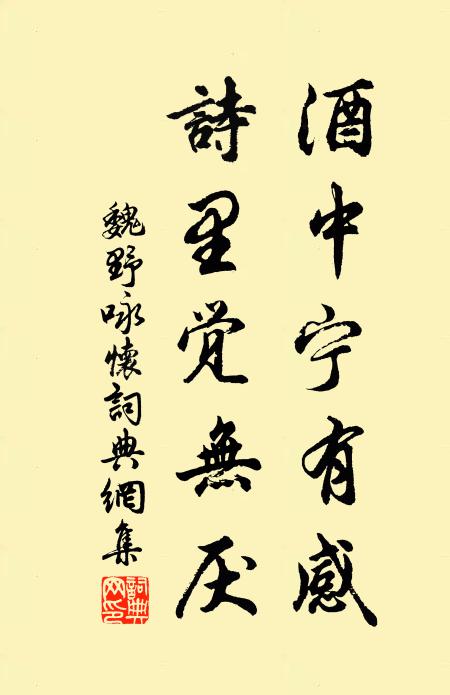 酒中宁有感
詩里觉無厌
魏野咏懷詞典網集
詞典
网印